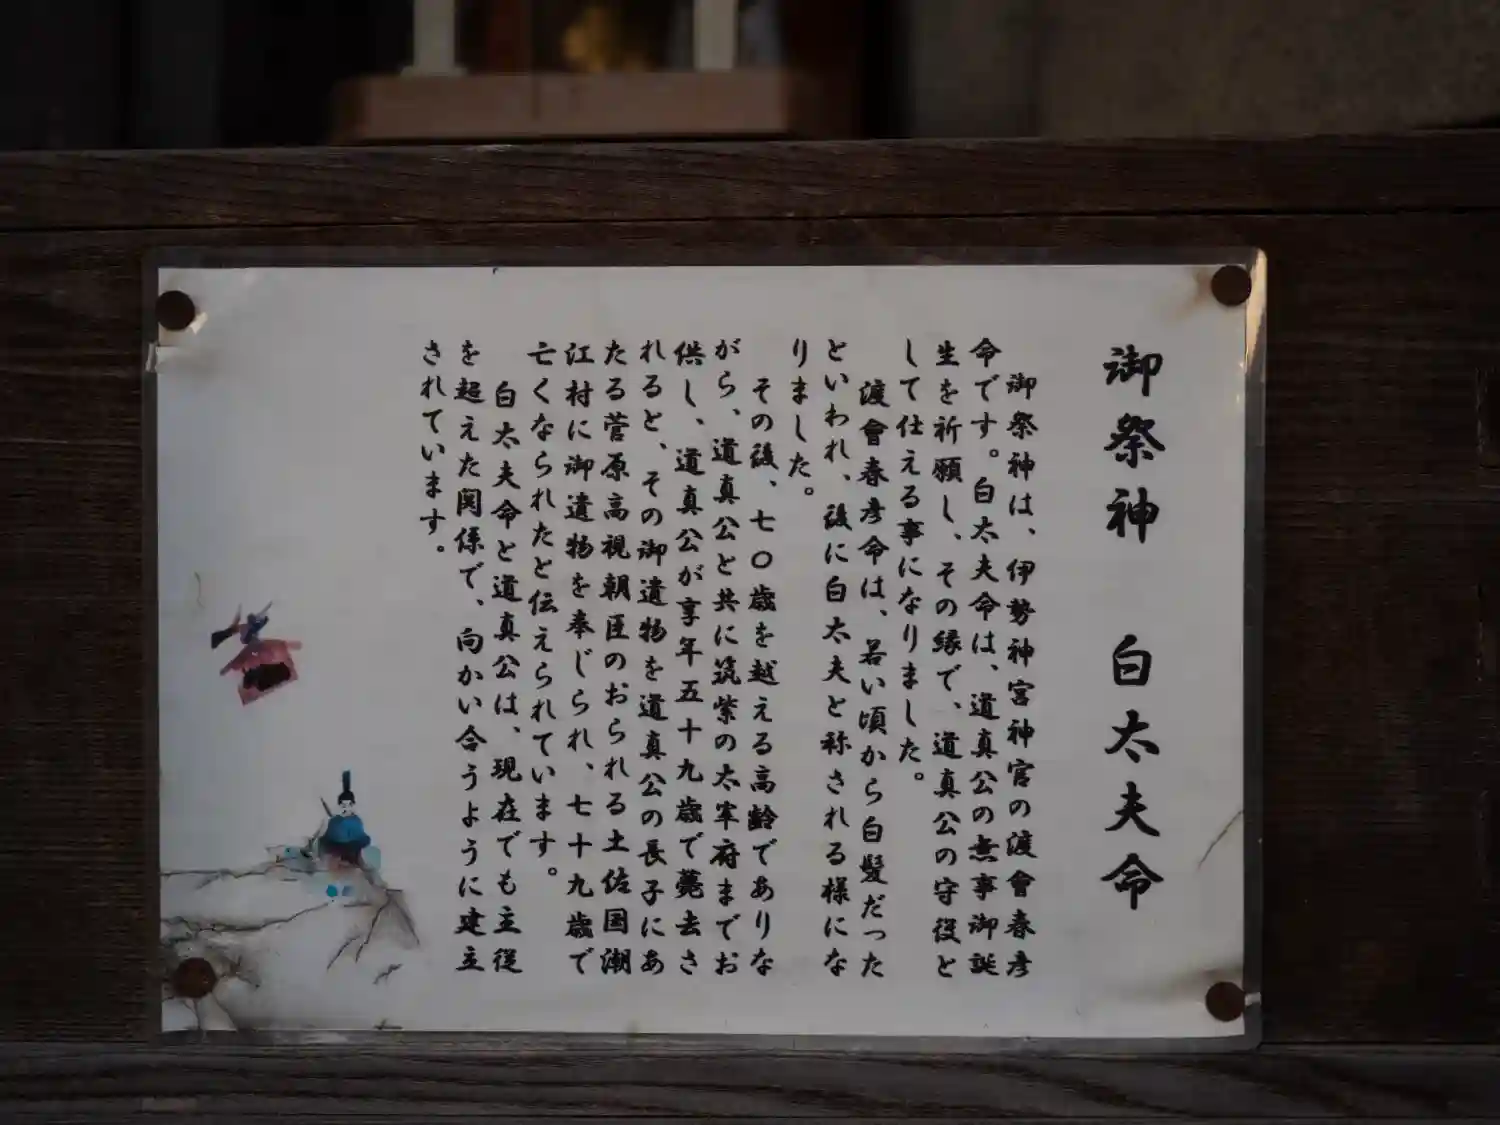 御祭神　白太夫命
御祭神は、伊勢神宮神官の渡會春彦
命です。白太夫命は、道真公の無事御誕
生を祈願し、その縁で、道真公の守役と
して仕える事になりました。
渡會春彦命は、若い頃から白髪だった
といわれ、後に白太夫と称される様にな
りました。
その後、七〇歳を越える高齢でありな
がら、道真公と共に筑紫の太宰府までお
供し、道真公が享年五十九歳で薨去さ
れると、その御遺物を道真公の長子にあ
たる菅原高視朝臣のおられる土佐国潮
江村に御遺物を奉じられ、七十九歳で
亡くなられたと伝えられています。
白太夫命と道真公は、現在でも主従
を超えた関係で、向かい合うように建立
されています。